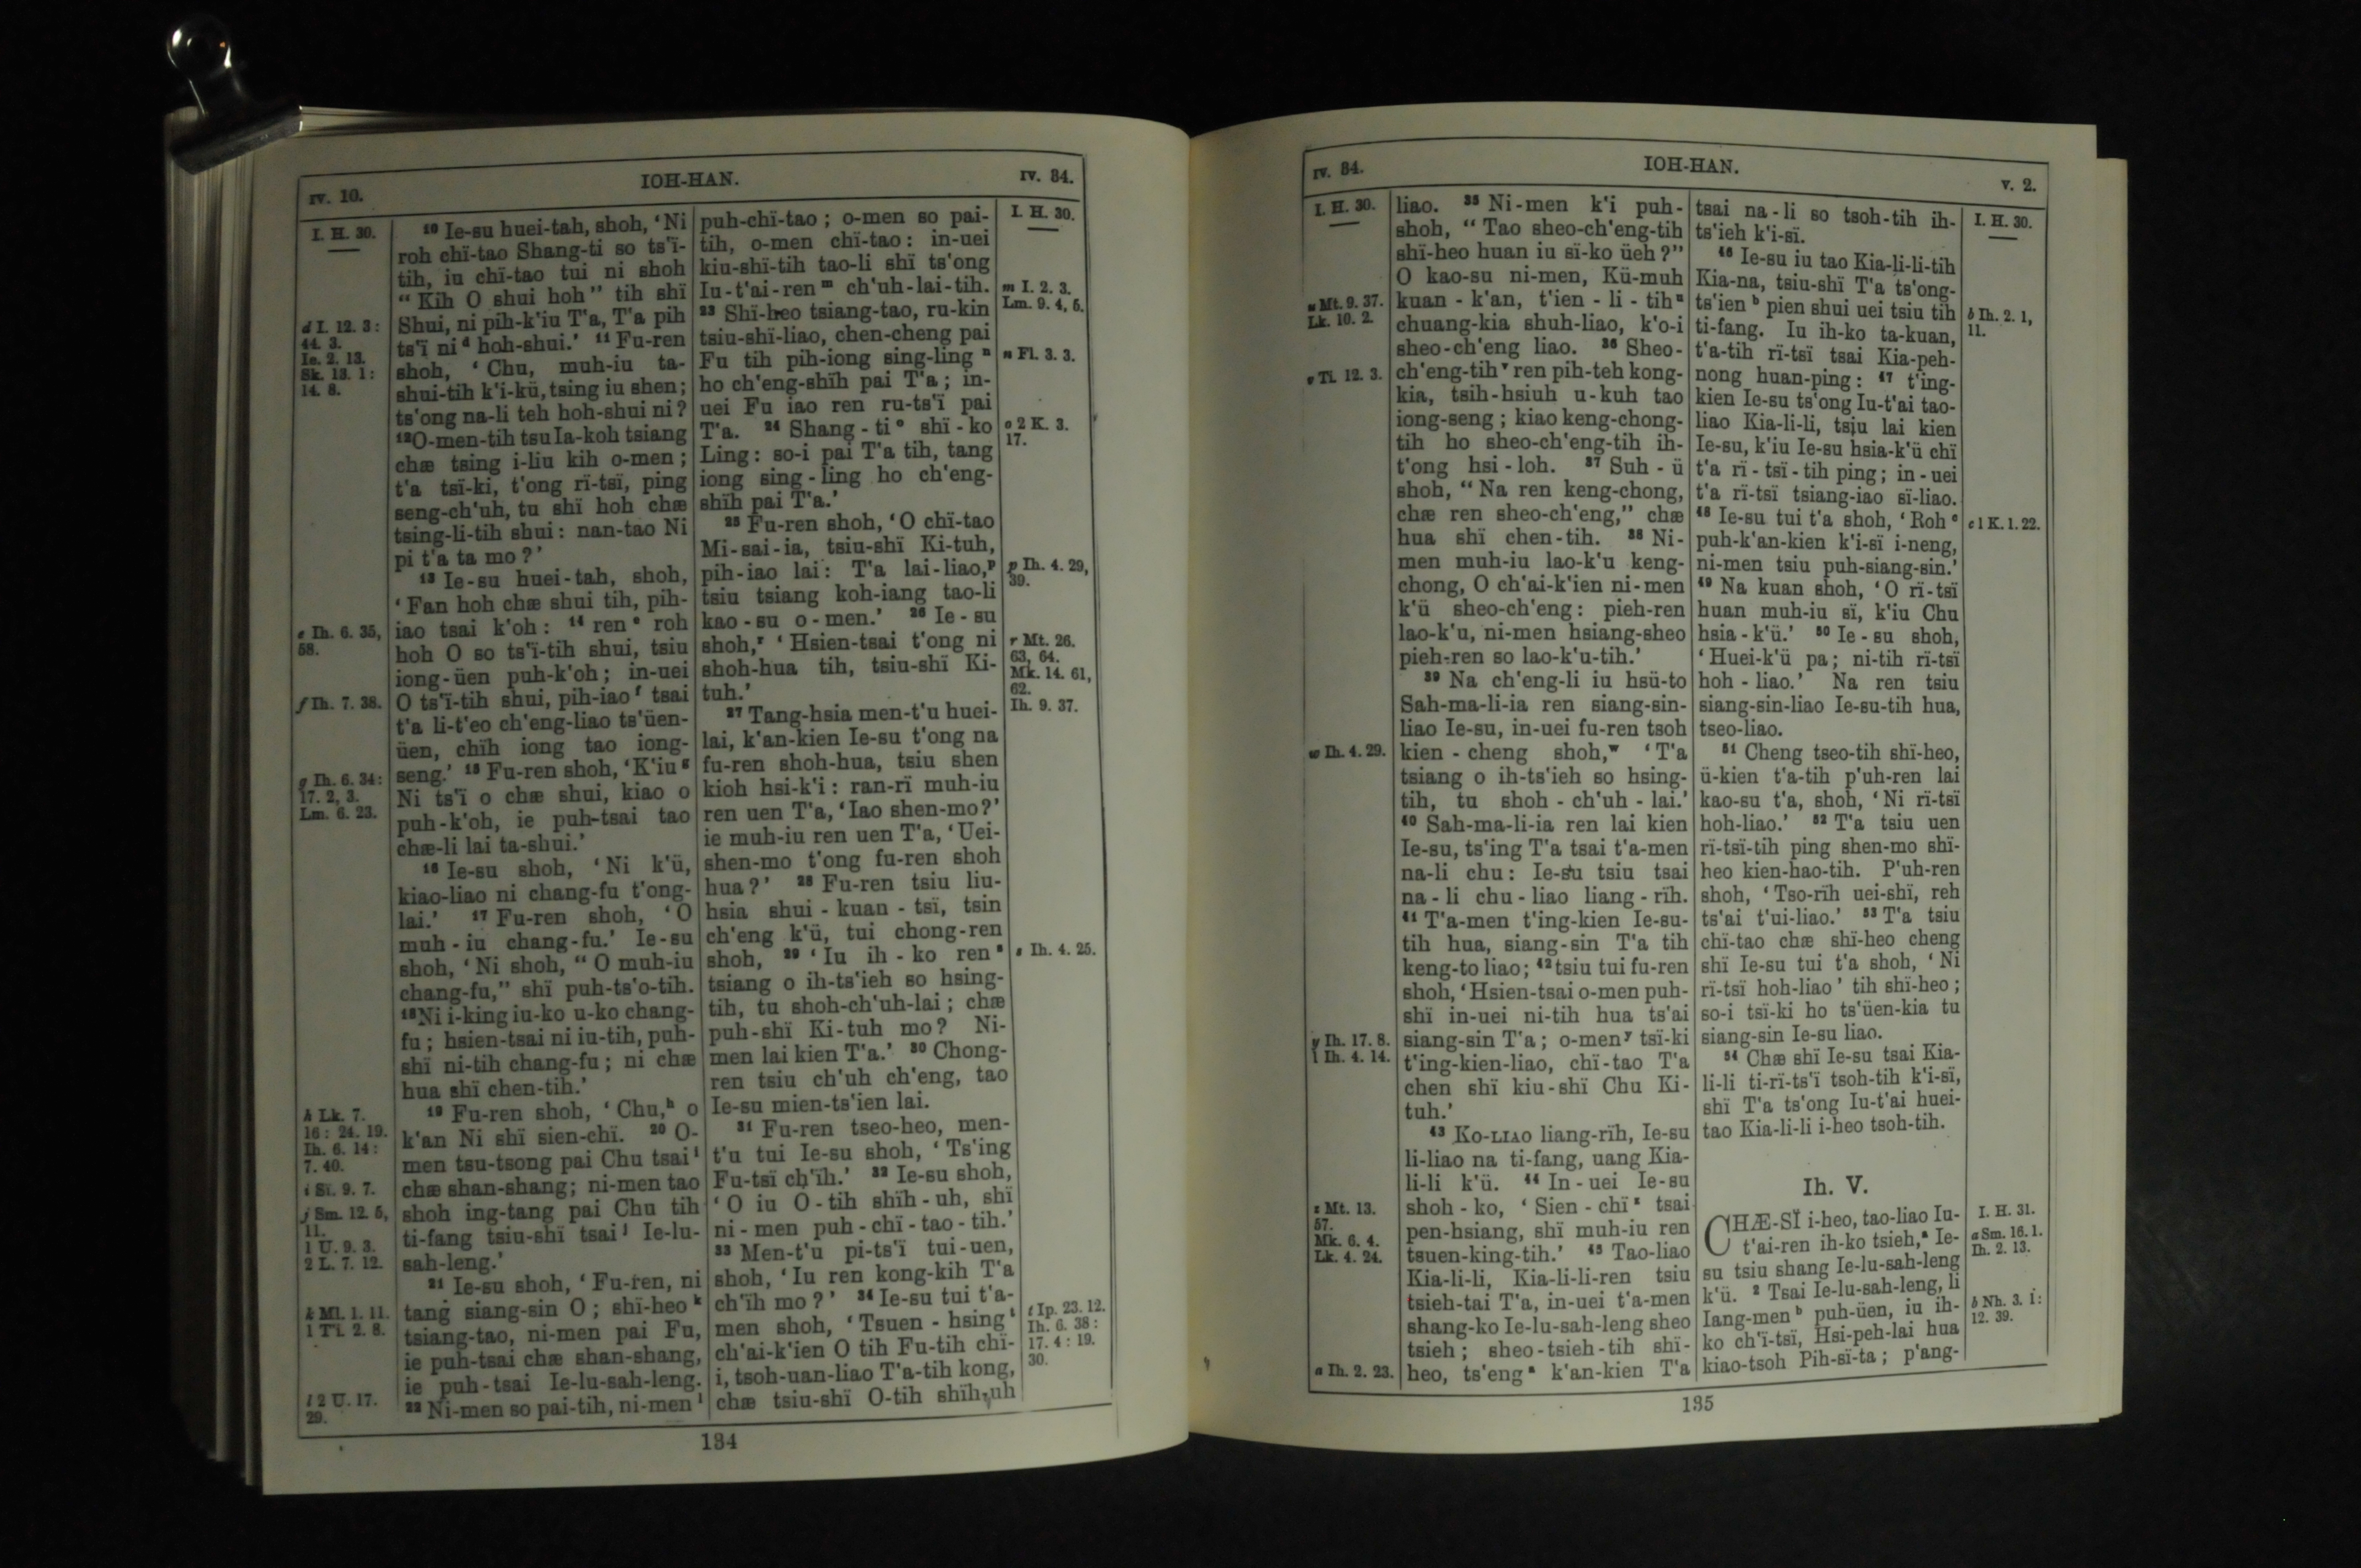 IV. 10.
IOH-HAN.
IV. 34.
I. H. 30.
d I. 12. 3:
44. 3.
Ie. 2. 13.
Sk. 13. 1:
14. 8.
e Ih. 6. 35,
58.
f Ih. 7. 38.
g Ih. 6. 34:
17. 2, 3.
Lm. 6. 23.
h Lk. 7.
16: 24. 19.
Ih. 6. 14:
7. 40.
i Sï. 9. 7.
j Sm. 12. 5,
11.
1 U. 9. 3.
2 L. 7. 12.
k Ml. 1. 11.
1 Ti. 2. 8.
l 2 U. 17.
29.
¹⁰ Ie-su huei-tah, shoh, ‘Ni
roh chï-tao Shang-ti so ts'ï-
tih, iu chï-tao tui ni shoh
“Kih O shui hoh” tih shï
Shui, ni pih-k'iu T'a, T'a pih
ts'ï ni ᵈ hoh-shui.’ ¹¹ Fu-ren
shoh, ‘Chu, muh-iu ta-
shui-tih k'i-kü, tsing iu shen;
ts'ong na-li teh hoh-shui ni?
¹²O-men-tih tsu Ia-koh tsiang
chæ tsing i-liu kih o-men;
t'a tsï-ki, t'ong rï-tsï, ping
seng-ch'uh, tu shï hoh chæ
tsing-li-tih shui: nan-tao Ni
pi t'a ta mo?’
¹³ Ie-su huei-tah, shoh,
‘Fan hoh chæ shui tih, pih-
iao tsai k'oh: ¹⁴ ren ᵉ roh
hoh O so ts'ï-tih shui, tsiu
iong-üen puh-k'oh; in-uei
O ts'ï-tih shui, pih-iao ᶠ tsai
t'a li-t'eo ch'eng-liao ts'üen-
üen, chïh iong tao iong-
seng.’ ¹⁵ Fu-ren shoh, ‘K'iu ᵍ
Ni ts'ï o chæ shui, kiao o
puh-k'oh, ie puh-tsai tao
chæ-li lai ta-shui.’
¹⁶ Ie-su shoh, ‘Ni k'ü,
kiao-liao ni chang-fu t'ong-
lai.’ ¹⁷ Fu-ren shoh, ‘O
muh-iu chang-fu.’ Ie-su
shoh, ‘Ni shoh, “O muh-iu
chang-fu,” shï puh-ts'o-tih.
¹⁸Ni i-king iu-ko u-ko chang-
fu; hsien-tsai ni iu-tih, puh-
shï ni-tih chang-fu; ni chæ
hua shï chen-tih.’
¹⁹ Fu-ren shoh, ‘Chu,ʰ o
k'an Ni shï sien-chï. ²⁰ O-
men tsu-tsong pai Chu tsai ⁱ
chæ shan-shang; ni-men tao
shoh ing-tang pai Chu tih
ti-fang tsiu-shï tsai ʲ Ie-lu-
sah-leng.’
²¹ Ie-su shoh, ‘Fu-ren, ni
tang siang-sin O; shï-heo ᵏ
tsiang-tao, ni-men pai Fu,
ie puh-tsai chæ shan-shang,
ie puh-tsai Ie-lu-sah-leng.
²² Ni-men so pai-tih, ni-men ˡ
puh-chï-tao; o-men so pai-
tih, o-men chï-tao: in-uei
kiu-shï-tih tao-li shï ts'ong
Iu-t'ai-ren ᵐ ch'uh-lai-tih.
²³ Shï-heo tsiang-tao, ru-kin
tsiu-shï-liao, chen-cheng pai
Fu tih pih-iong sing-ling ⁿ
ho ch'eng-shïh pai T'a; in-
uei Fu iao ren ru-ts'ï pai
T'a. ²⁴ Shang-ti ᵒ shï-ko
Ling: so-i pai T'a tih, tang
iong sing-ling ho ch'eng-
shïh pai T'a.’
²⁵ Fu-ren shoh, ‘O chï-tao
Mi-sai-ia, tsiu-shï Ki-tuh,
pih-iao lai: T'a lai-liao,ᵖ
tsiu tsiang koh-iang tao-li
kao-su o-men.’ ²⁶ Ie-su
shoh,ʳ ‘Hsien-tsai t'ong ni
shoh-hua tih, tsiu-shï Ki-
tuh.’
²⁷ Tang-hsia men-t'u huei-
lai, k'an-kien Ie-su t'ong na
fu-ren shoh-hua, tsiu shen
kioh hsi-k'i: ran-rï muh-iu
ren uen T'a, ‘Iao shen-mo?’
ie muh-iu ren uen T'a, ‘Uei-
shen-mo t'ong fu-ren shoh
hua?’ ²⁸ Fu-ren tsiu liu-
hsia shui-kuan-tsï, tsin
ch'eng k'ü, tui chong-ren
shoh, ²⁹ ‘Iu ih-ko ren ˢ
tsiang o ih-ts'ieh so hsing-
tih, tu shoh-ch'uh-lai; chæ
puh-shï Ki-tuh mo? Ni-
men lai kien T'a.’ ³⁰ Chong-
ren tsiu ch'uh ch'eng, tao
Ie-su mien-ts'ien lai.
³¹ Fu-ren tseo-heo, men-
t'u tui Ie-su shoh, ‘Ts'ing
Fu-tsï ch'ïh.’ ³² Ie-su shoh,
‘O iu O-tih shïh-uh, shï
ni-men puh-chï-tao-tih.’
³³ Men-t'u pi-ts'ï tui-uen,
shoh, ‘Iu ren kong-kih T'a
ch'ïh mo?’ ³⁴ Ie-su tui t'a-
men shoh, ‘Tsuen-hsing ᵗ
ch'ai-k'ien O tih Fu-tih chï-
i, tsoh-uan-liao T'a-tih kong,
chæ tsiu-shï O-tih shïh-uh
I. H. 30.
m I. 2. 3.
Lm. 9. 4, 5.
n Fl. 3. 3.
o 2 K. 3.
17.
p Ih. 4. 29,
39.
r Mt. 26.
63, 64.
Mk. 14. 61,
62.
Ih. 9. 37.
s Ih. 4. 25.
t Ip. 23. 12.
Ih. 6. 38:
17. 4: 19.
30.
134
IV. 34.
IOH-HAN.
V. 2.
I. H. 30.
u Mt. 9. 37.
Lk. 10. 2.
v Ti. 12. 3.
w Ih. 4. 29.
y Ih. 17. 8.
1 Ih. 4. 14.
z Mt. 13.
57.
Mk. 6. 4.
Lk. 4. 24.
a Ih. 2. 23.
liao. ³⁵ Ni-men k'i puh-
shoh, “Tao sheo-ch'eng-tih
shï-heo huan iu sï-ko üeh?”
O kao-su ni-men, Kü-muh
kuan-k'an, t'ien-li-tih ᵘ
chuang-kia shuh-liao, k'o-i
sheo-ch'eng liao. ³⁶ Sheo-
ch'eng-tih ᵛ ren pih-teh kong-
kia, tsih-hsiuh u-kuh tao
iong-seng; kiao keng-chong-
tih ho sheo-ch'eng-tih ih-
t'ong hsi-loh. ³⁷ Suh-ü
shoh, “Na ren keng-chong,
chæ ren sheo-ch'eng,” chæ
hua shï chen-tih. ³⁸ Ni-
men muh-iu lao-k'u keng-
chong, O ch'ai-k'ien ni-men
k'ü sheo-ch'eng: pieh-ren
lao-k'u, ni-men hsiang-sheo
pieh-ren so lao-k'u-tih.’
³⁹ Na ch'eng-li iu hsü-to
Sah-ma-li-ia ren siang-sin-
liao Ie-su, in-uei fu-ren tsoh
kien-cheng shoh,ʷ ‘T'a
tsiang o ih-ts'ieh so hsing-
tih, tu shoh-ch'uh-lai.’
⁴⁰ Sah-ma-li-ia ren lai kien
Ie-su, ts'ing T'a tsai t'a-men
na-li chu: Ie-su tsiu tsai
na-li chu-liao liang-rïh.
⁴¹ T'a-men t'ing-kien Ie-su-
tih hua, siang-sin T'a tih
keng-to liao; ⁴²tsiu tui fu-ren
shoh, ‘Hsien-tsai o-men puh-
shï in-uei ni-tih hua ts'ai
siang-sin T'a; o-men ʸ tsï-ki
t'ing-kien-liao, chï-tao T'a
chen shï kiu-shï Chu Ki-
tuh.’
⁴³ KO-LIAO liang-rïh, Ie-su
li-liao na ti-fang, uang Kia-
li-li k'ü. ⁴⁴ In-uei Ie-su
shoh-ko, ‘Sien-chï ᶻ tsai
pen-hsiang, shï muh-iu ren
tsuen-king-tih.’ ⁴⁵ Tao-liao
Kia-li-li, Kia-li-li-ren tsiu
tsieh-tai T'a, in-uei t'a-men
shang-ko Ie-lu-sah-leng sheo
tsieh; sheo-tsieh-tih shï-
heo, ts'eng ᵃ k'an-kien T'a
tsai na-li so tsoh-tih ih-
ts'ieh k'i-sï.
⁴⁶ Ie-su iu tao Kia-li-li-tih
Kia-na, tsiu-shï T'a ts'ong-
ts'ien ᵇ pien shui uei tsiu tih
ti-fang. Iu ih-ko ta-kuan,
t'a-tih rï-tsï tsai Kia-peh-
nong huan-ping: ⁴⁷ t'ing-
kien Ie-su ts'ong Iu-t'ai tao-
liao Kia-li-li, tsiu lai kien
Ie-su, k'iu Ie-su hsia-k'ü chï
t'a rï-tsï-tih ping; in-uei
t'a rï-tsï tsiang-iao sï-liao.
⁴⁸ Ie-su tui t'a shoh, ‘Roh ᶜ
puh-k'an-kien k'i-sï i-neng,
ni-men tsiu puh-siang-sin.’
⁴⁹ Na kuan shoh, ‘O rï-tsï
huan muh-iu sï, k'iu Chu
hsia-k'ü.’ ⁵⁰ Ie-su shoh,
‘Huei-k'ü pa; ni-tih rï-tsï
hoh-liao.’ Na ren tsiu
siang-sin-liao Ie-su-tih hua,
tseo-liao.
⁵¹ Cheng tseo-tih shï-heo,
ü-kien t'a-tih p'uh-ren lai
kao-su t'a, shoh, ‘Ni rï-tsï
hoh-liao.’ ⁵² T'a tsiu uen
rï-tsï-tih ping shen-mo shï-
heo kien-hao-tih. P'uh-ren
shoh, ‘Tso-rïh uei-shï, reh
ts'ai t'ui-liao.’ ⁵³ T'a tsiu
chï-tao chæ shï-heo cheng
shï Ie-su tui t'a shoh, ‘Ni
rï-tsï hoh-liao’ tih shï-heo;
so-i tsï-ki ho ts'üen-kia tu
siang-sin Ie-su liao.
⁵⁴ Chæ shï Ie-su tsai Kia-
li-li ti-rï-ts'ï tsoh-tih k'i-sï,
shï T'a ts'ong Iu-t'ai huei-
tao Kia-li-li i-heo tsoh-tih.
Ih. V.
CHÆ-SÏ i-heo, tao-liao Iu-
t'ai-ren ih-ko tsieh,ᵃ Ie-
su tsiu shang Ie-lu-sah-leng
k'ü. ² Tsai Ie-lu-sah-leng, li
Iang-men ᵇ puh-üen, iu ih-
ko ch'ï-tsï, Hsi-peh-lai hua
kiao-tsoh Pih-sï-ta; p'ang-
I. H. 30.
b Ih. 2. 1,
11.
c 1 K. 1. 22.
I. H. 31.
a Sm. 16. 1.
Ih. 2. 13.
b Nh. 3. 1:
12. 39.
135